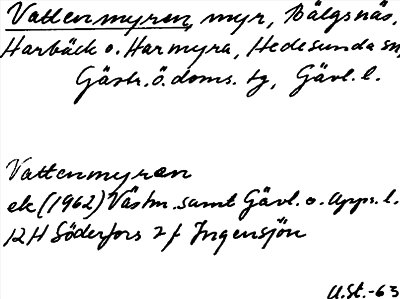 Vattenmyren, myr, Bälgsnäs,
Harbäck o. Harmyra, Hedesunda sn,
Gästr. ö. doms. tg, Gävl. l.
Vattenmyren
ek (1962) Västm. samt Gävl. o. Upps. l.
12H Söderfors 2 f Ingensjön
U.St. -63